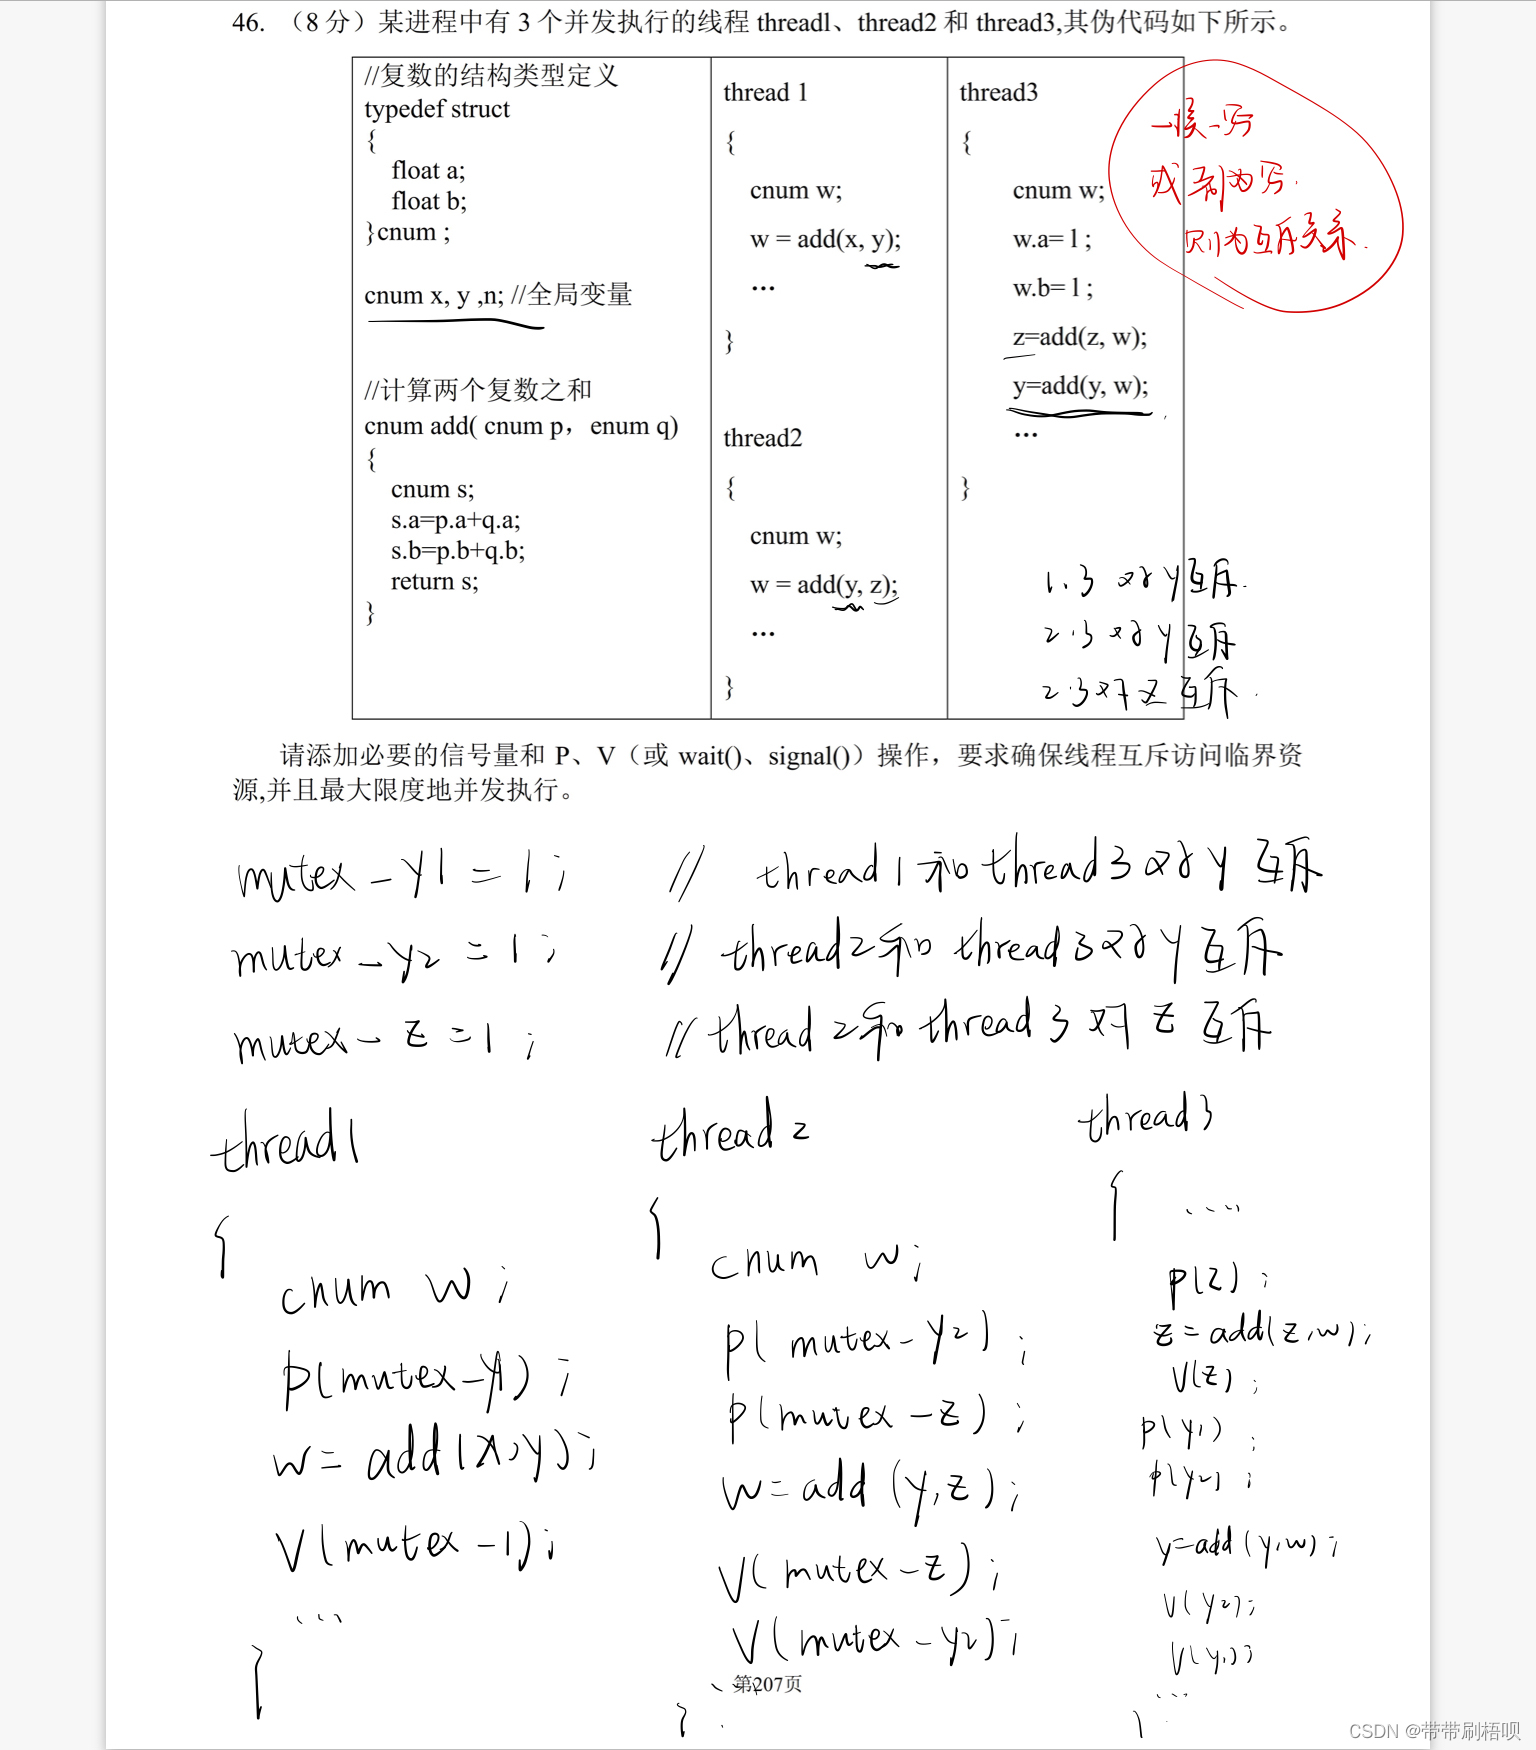 46. （8 分）某进程中有 3 个并发执行的线程 threadl、thread2 和 thread3,其伪代码如下所示。
//复数的结构类型定义
typedef struct
{
float a;
float b;
}cnum ;
cnum x, y ,n; //全局变量
//计算两个复数之和
cnum add( cnum p，enum q)
{
cnum s;
s.a=p.a+q.a;
s.b=p.b+q.b;
return s;
}
thread 1
{
cnum w;
w = add(x, y);
...
}
thread2
{
cnum w;
w = add(y, z);
...
}
thread3
{
cnum w;
w.a= l ;
w.b= l ;
z=add(z, w);
y=add(y, w);
...
}
一读一写
或 都为写.
则为互斥关系.
1.3 对 y 互斥.
2.3 对 y 互斥
2.3 对 z 互斥.
请添加必要的信号量和 P、V（或 wait()、signal()）操作，要求确保线程互斥访问临界资
源,并且最大限度地并发执行。
mutex-y1 = 1; // thread1和thread3对y互斥
mutex-y2 = 1; // thread2和thread3对y互斥
mutex-z = 1; // thread2和thread3对z互斥
thread1
{
cnum w;
p(mutex-y1);
w= add(x,y);
V(mutex-1);
...
}
thread2
{
cnum w;
p(mutex-y2);
p(mutex-z);
w=add(y,z);
V(mutex-z);
V(mutex-y2);
...
}
thread3
{ ....
p(z);
z=add(z,w);
V(z);
p(y1);
p(y2);
y=add(y,w);
V(y2);
V(y1);
...
}
第207页
CSDN @带带刷梧呗